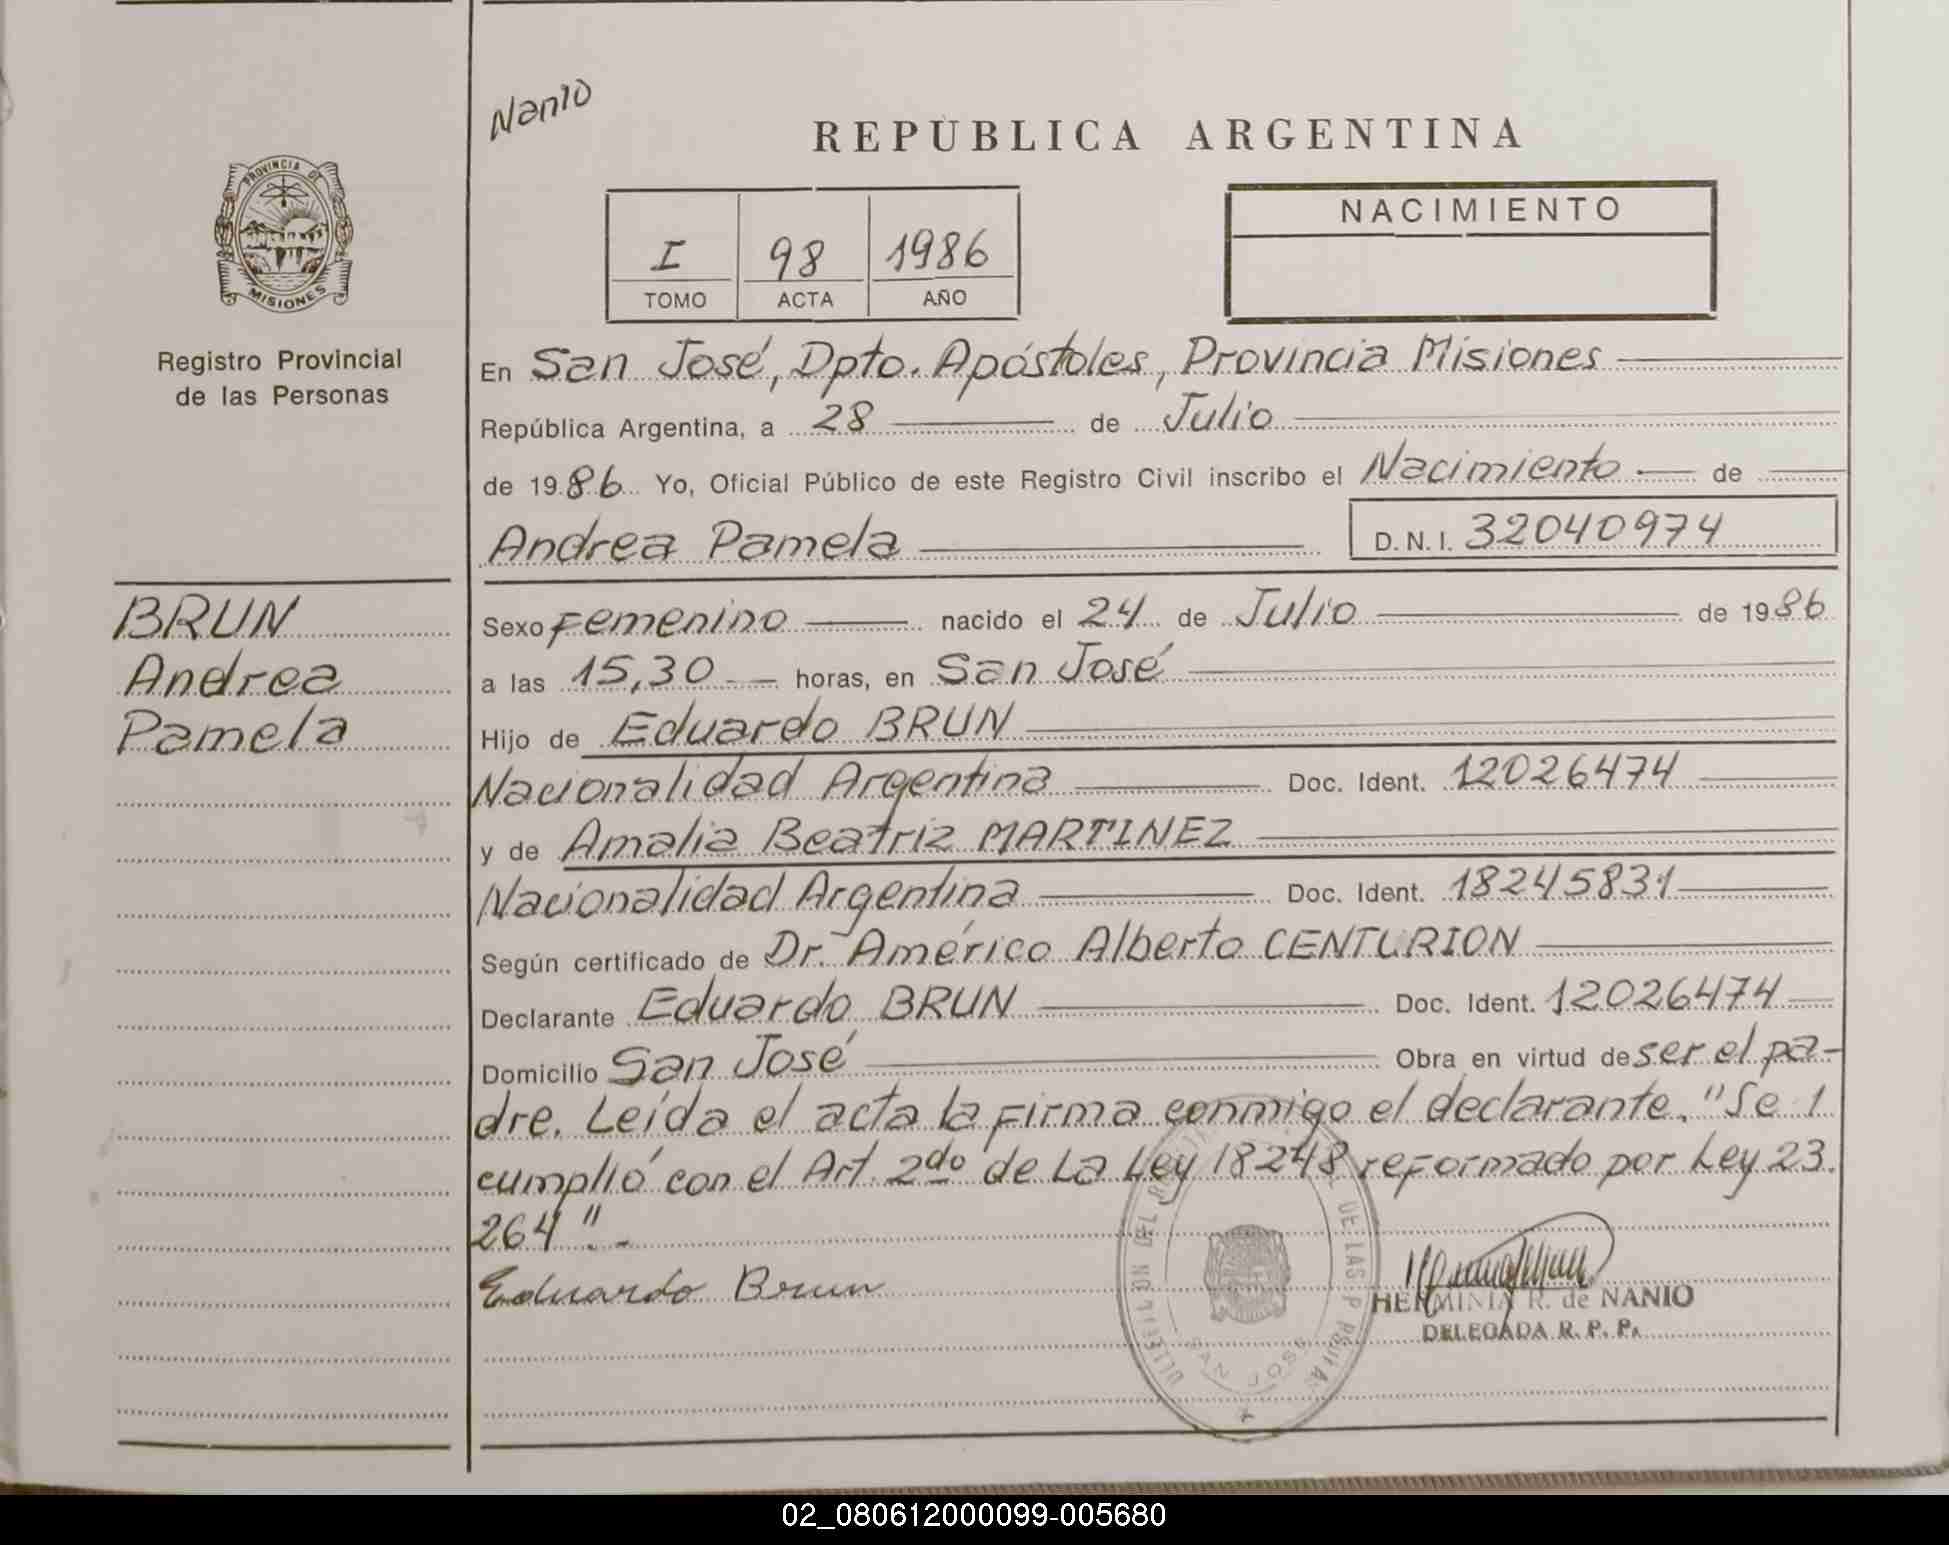 Nanio
REPUBLICA ARGENTINA
PROVINCIA DE
MISIONES
Registro Provincial
de las Personas
I 98 1986
TOMO ACTA AÑO
NACIMIENTO
En San José, Dpto. Apóstoles, Provincia Misiones
República Argentina, a 28 de Julio
de 1986 Yo, Oficial Público de este Registro Civil inscribo el Nacimiento de
Andrea Pamela D.N.I. 32040974
BRUN
Andrea
Pamela
Sexo Femenino nacido el 24 de Julio de 1986
a las 15,30 horas, en San José
Hijo de Eduardo BRUN
Nacionalidad Argentina Doc. Ident. 12026474
y de Amalia Beatriz MARTINEZ
Nacionalidad Argentina Doc. Ident. 18245831
Según certificado de Dr. Américo Alberto CENTURION
Declarante Eduardo BRUN Doc. Ident. 12026474
Domicilio San José Obra en virtud de ser el pa-
dre. Leída el acta la firma conmigo el declarante. "Se
cumplió con el Art. 2do de La Ley 18248 reformado por Ley 23.
264".-
Eduardo Brun
HERMINIA R. de NANIO
DELEGADA R. P. P.
DEL
DE LAS P
SAN JOSE
02_080612000099-005680